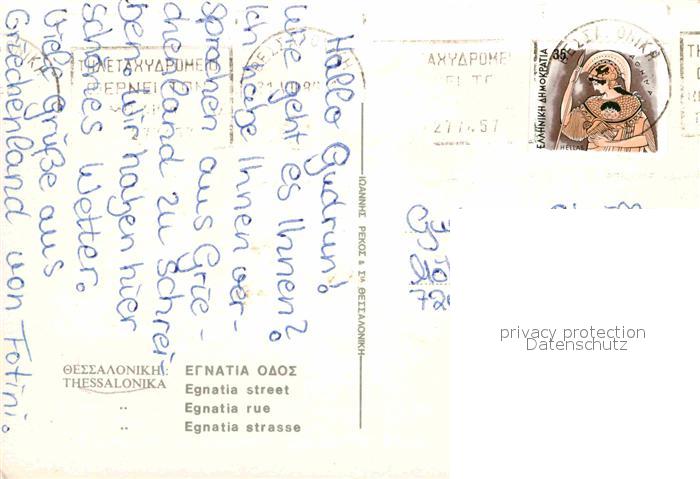 Hallo Gudrun!
Wie geht es Ihnen?
Ich habe Ihnen ver-
sprochen aus Grie-
chenland zu schrei-
ben. Wir haben hier
schönes Wetter.
Viele Grüße aus
Griechenland von Fotini.
ΘΕΣΣΑΛΟΝΙΚΗ: ΕΓΝΑΤΙΑ ΟΔΟΣ
THESSALONIKA Egnatia street
" Egnatia rue
" Egnatia strasse
ΙΩΑΝΝΗΣ ΡΕΚΟΣ & ΣΙΑ ΘΕΣΣΑΛΟΝΙΚΗ
ΤΗΛΕΤΑΧΥΔΡΟΜΕΙ
ΑΧΥΔΡΟΜΕ
35
ΕΛΛΗΝΙΚΗ ΔΗΜΟΚΡΑΤΙΑ
HELLAS
privacy protection
Datenschutz